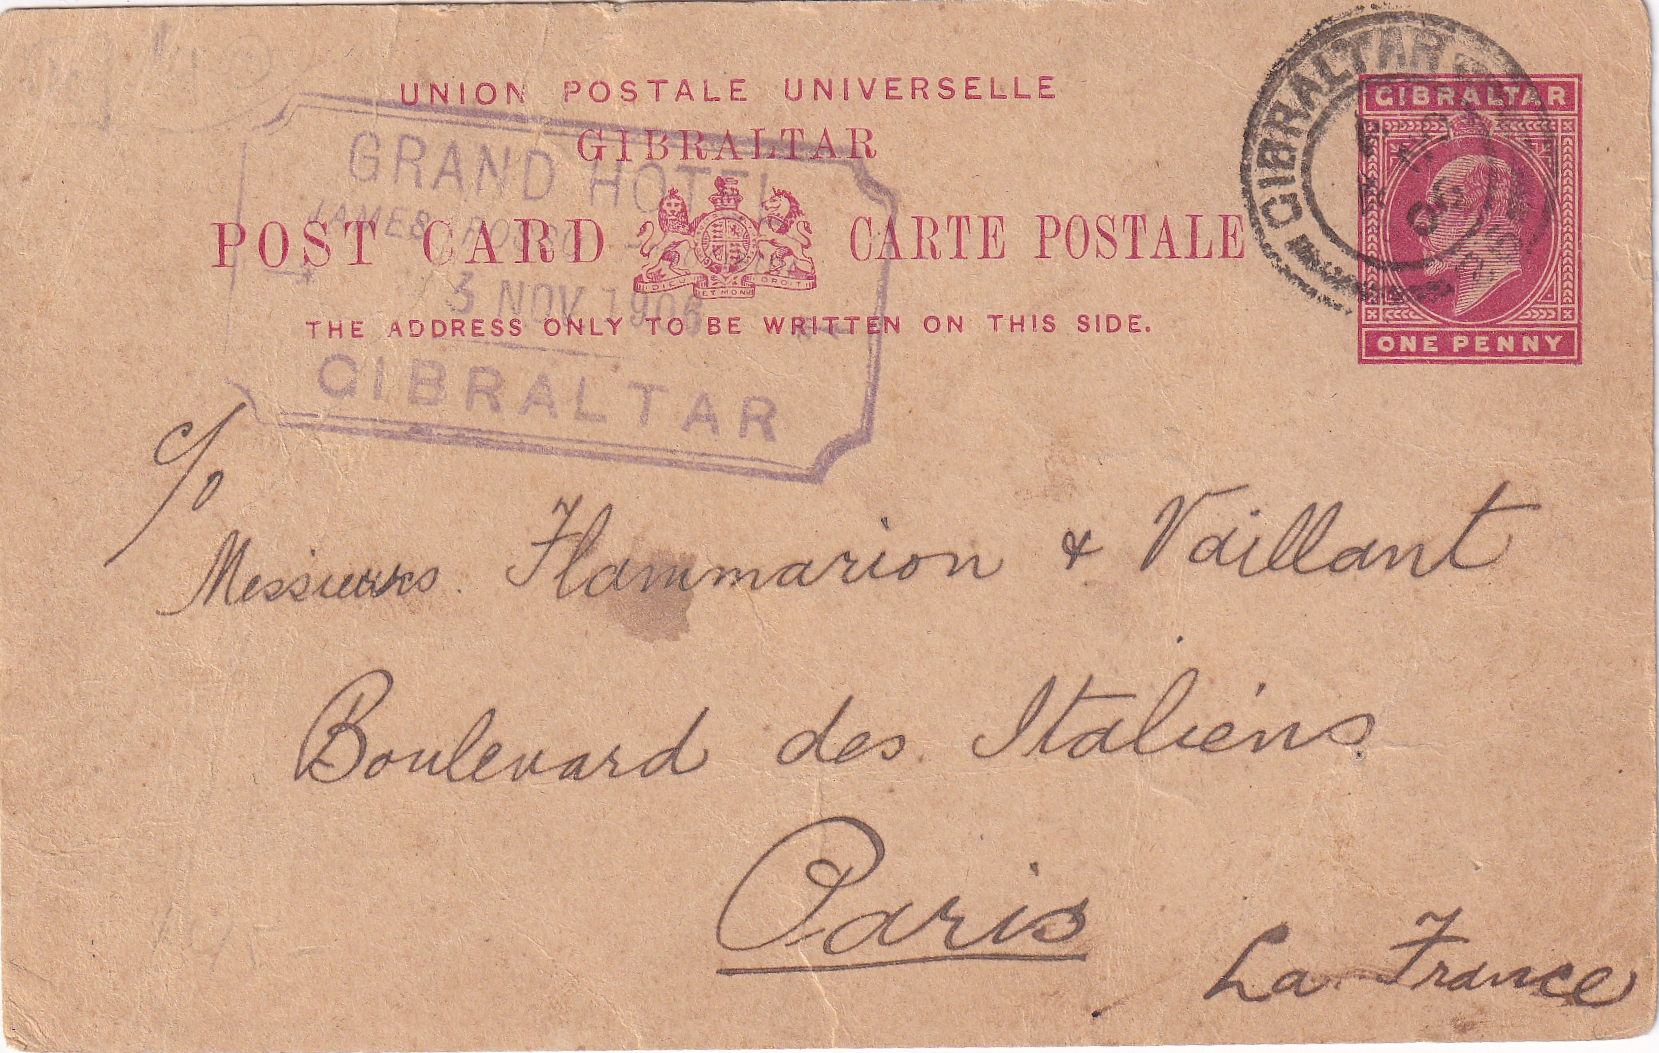 UNION POSTALE UNIVERSELLE
GIBRALTAR
POST CARD CARTE POSTALE
DIEU ET MON DROIT
THE ADDRESS ONLY TO BE WRITTEN ON THIS SIDE.
GRAND HOTEL
JAMES
3 NOV 1906
GIBRALTAR
GIBRALTAR
GIBRALTAR
ONE PENNY
c/o
Messieurs. Flammarion & Vaillant
Boulevard des Italiens
Paris
La France